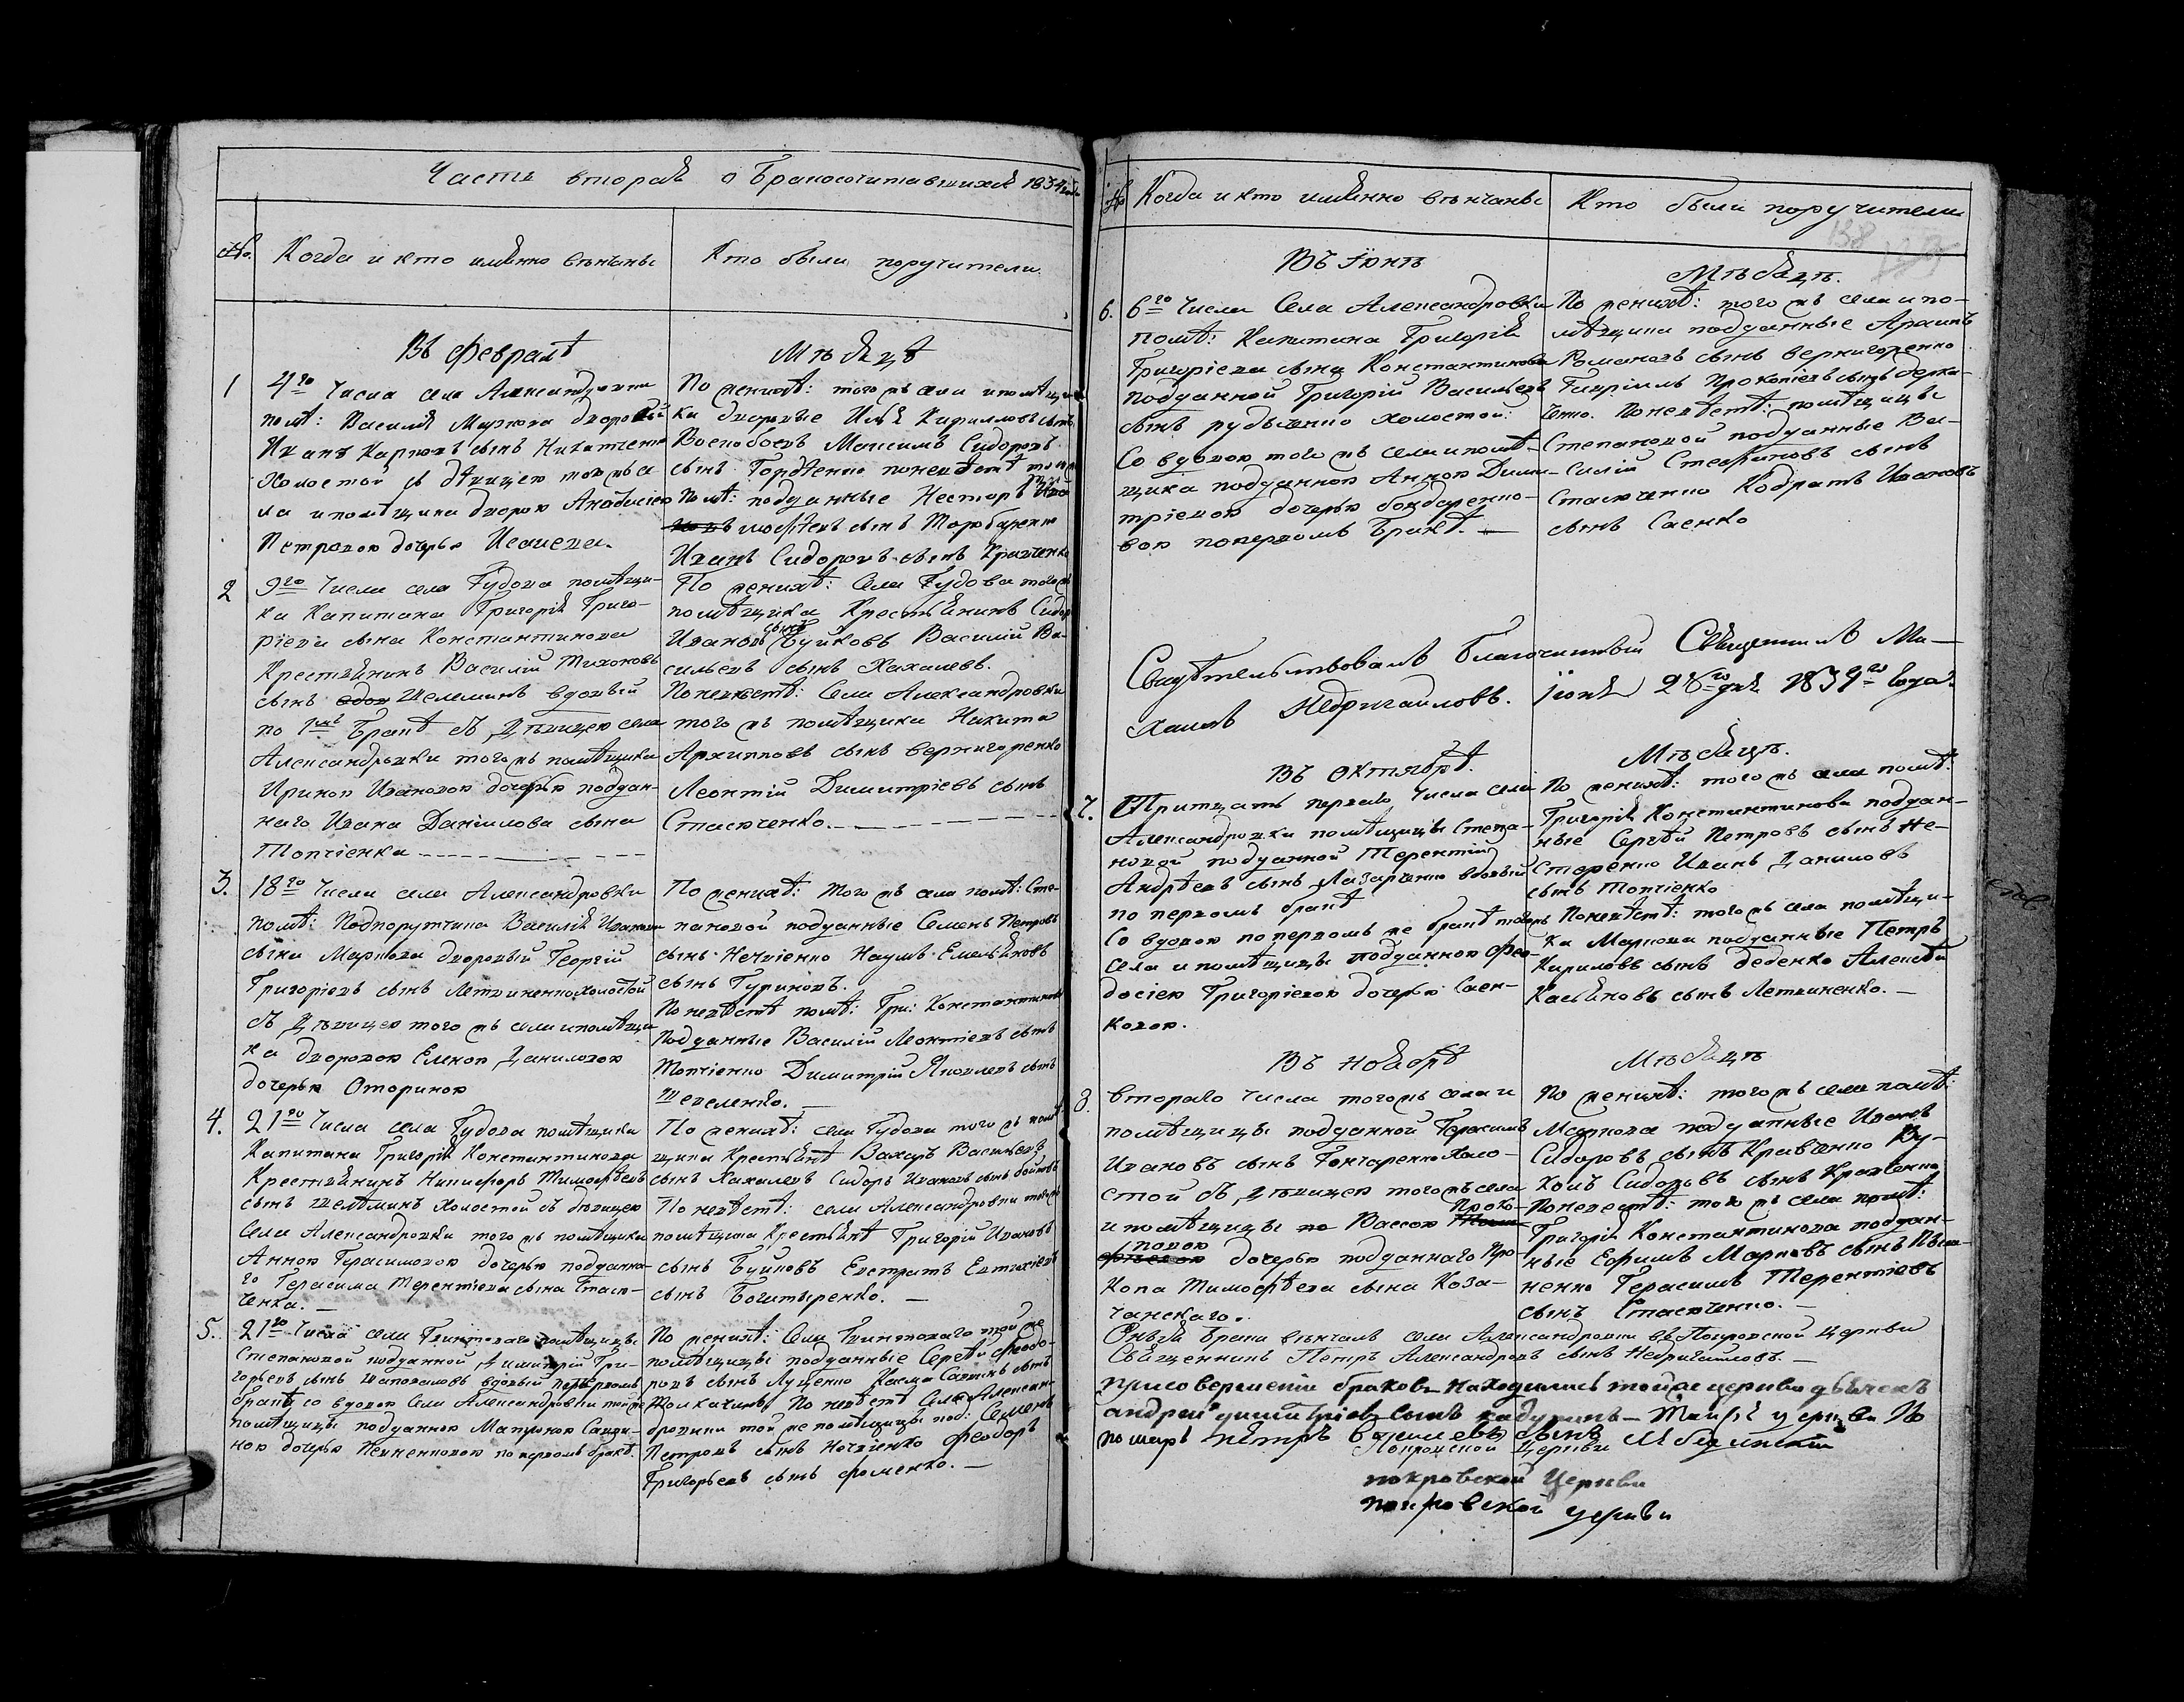 Часть вторая о Бракосочитавшихся 1834 года
№. Когда и кто имянно венчаны
Кто были поручители
Въ Февралѣ
Мѣсяцѣ
1
4го Числа села Александровки
помѣ: Василія Маркова дворовый
Иванъ Карповъ сынъ
Холостой съ дѣвицею того жъ се
ла и помѣщика дворовою
Петровою дочерью Исаевою.
По женихѣ: того жъ села и помѣщи
ка дворовые Илья Кирилловъ сынъ
Максимъ Сидоровъ
сынъ Гордѣенко по невѣстѣ
помѣ: подданные Несторъ
сынъ
Иванъ Сидоровъ сынъ Кравченко
2
9го Числа села Гудова помѣщи-
ка Капитана Григорія Григо-
ріева сына Константинова
Крестьянинъ Василій Тихоновъ
сынъ Шелеминъ вдовый
по 1мъ Бракѣ съ Дѣвицею села
Александровки того жъ помѣщика
Ириною Ивановою дочерью поддан-
наго Ивана Даніилова сына
Топчіенка
По женихѣ: Села Гудова того жъ
помѣщика Крестьянинъ Сидоръ
Ивановъ сынъ Буйковъ Василій Ва-
сильевъ сынъ Хахалевъ.
По невѣстѣ: Села Александровки
того жъ помѣщика Никита
Архиповъ сынъ Вернигоренко
Леонтій Димитріевъ сынъ
Стасюченко.
3.
18го Числа села Александровки
помѣ: Подпоручика Василія Иванова
сына Маркова дворовый Георгій
Григоріевъ сынъ Летвиненко холостой
съ Дѣвицею того жъ села и помѣщи
ка дворовою Еленою Даниловою
дочерью
По женихѣ: того жъ села помѣ: Сте-
пановой подданные Семенъ Петровъ
сынъ Нечіенко Наумъ Емельяновъ
сынъ Гуриновъ.
По невѣстѣ помѣ: Гри: Константинова
Подданные Василій Леонтіевъ сынъ
Топчіенко Димитрій Яковлевъ сынъ
Шевеленко.
4.
21го Числа села Гудова помѣщика
Капитана Григорія Константинова
Крестьянинъ Никифоръ Тимофѣевъ
сынъ Шелѣминъ холостой съ дѣвицею
Села Александровки того жъ помѣщика
Анною Герасимовою дочерью подданна-
го Герасима Терентіева сына Стасю-
ченка.
По женихѣ: села Гудова того жъ помѣ
щика Крестьянѣ Захаръ Васильевъ
сынъ Хахалевъ Сидоръ Ивановъ сынъ Бойковъ
По невѣстѣ: села Александровки того жъ
помѣщика Крестьянѣ Григорій Ивановъ
сынъ Буйновъ Евстратъ
сынъ Богатыренко.
5.
21го Числа села помѣщицы
Степановой подданной Димитрій Гри-
горьевъ сынъ Шаповаловъ вдовый первымъ
бракѣ со вдовою Села Александровки той же
помѣщицы подданною Матроною
ною дочерью по первомъ бракѣ.
По женихѣ: Села той же
помѣщицы подданные Сергѣй Феодо-
ровъ сынъ Луценко Касма сынъ
По невѣстѣ Села Алексан-
дровки той же помѣщицы под: Семенъ
Петровъ сынъ Нечіенко Феодоръ
Григорьевъ сынъ Фоменко.
№ Когда и кто имянно венчаны
Кто были поручители
138
Въ Іюнѣ
Мѣсяцѣ.
6.
6го Числа Села Александровки
помѣ: Капитана Григорія
Григоріева сына Константинова
подданной Григорій Васильевъ
сынъ Рудыченко холостой:
Со вдовою того жъ села и помѣ-
щика подданною Анною Дими-
тріевою дочерью Бондаренко-
вою по первомъ Бракѣ.
По женихѣ: того жъ села и по-
мѣщика подданные
Романовъ сынъ Вернигоренко
Гавріилъ Прокопіевъ сынъ
По невѣстѣ: помѣщицы
Степановой подданные Ва-
силій Стефановъ сынъ
Стасюченко Кодратъ Ивановъ
сынъ Саенко
Свидѣтельствовалъ Благочинный Священникъ Ми-
хаилъ Недригайловъ. Іюня 28го дня 1834го Года.
Въ Октябрѣ.
Мѣсяцѣ.
7.
Тритцать перваго Числа села
Александровки помѣщицы Степа-
новой подданной Терентій
Андрѣевъ сынъ Лазаренко вдовый
по первомъ бракѣ
Со вдовою по первомъ же бракѣ того жъ
села и помѣщицы подданною Фео-
досіею Григоріевою дочерью Саен-
ковою.
По женихѣ: того жъ села помѣ:
Григорія Константинова поддан-
ные Сергѣй Петровъ сынъ Не-
стеренко Иванъ Даниловъ
сынъ Топчіенко
По невѣстѣ: того жъ села помѣщи-
ка Маркова подданные Петръ
Кириловъ сынъ Деденко Алексѣй
Касьяновъ сынъ Летвиненко.
Въ Ноябрѣ
Мѣсяцѣ
8.
Втораго числа того жъ села и
помѣщицы подданной Герасимъ
Ивановъ сынъ Гончаренко Холо-
стой съ Дѣвицею того жъ села
и помѣщицы Вассою Проко-
повою дочерью подданнаго Про-
копа Тимофѣева сына Коза-
чанскаго.
По женихѣ: того жъ села помѣ:
Маркова подданные Иванъ
Сидоровъ сынъ Кравченко Ву-
колъ Сидоровъ сынъ Кравченко
По невѣстѣ: того жъ села помѣ:
Григорія Константинова поддан-
ные Ефимъ Марковъ сынъ
ненко Герасимъ Терентіевъ
сынъ Стасюченко.
Онъя Браки вѣнчалъ села Александровки Покровской Церкви
Священникъ Петръ Александровъ сынъ Недригайловъ.
при совершеніи браковъ находились той же церкви дьячекъ
андрей димитріевъ сынъ церкви По
номарь петръ сынъ
Покровской Церкви
покровской Церкви
покровской церкви